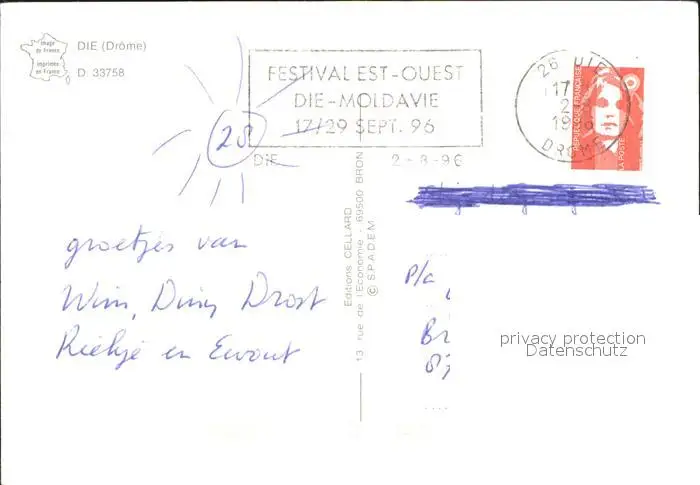 image
de France
imprimée
en France
DIE (Drôme)
D 33758
FESTIVAL EST-OUEST
DIE-MOLDAVIE
17/29 SEPT. 96
DIE
2-8-96
26 DIE
17
2
19
DROME
REPUBLIQUE FRANÇAISE
LA POSTE
28
groetjes van
Wim, Diny Drost
Riekje en Ewout
Editions CELLARD
13 rue de l'Economie - 69500 BRON
© S.P.A.D.E.M.
P/a
Br
privacy protection
Datenschutz